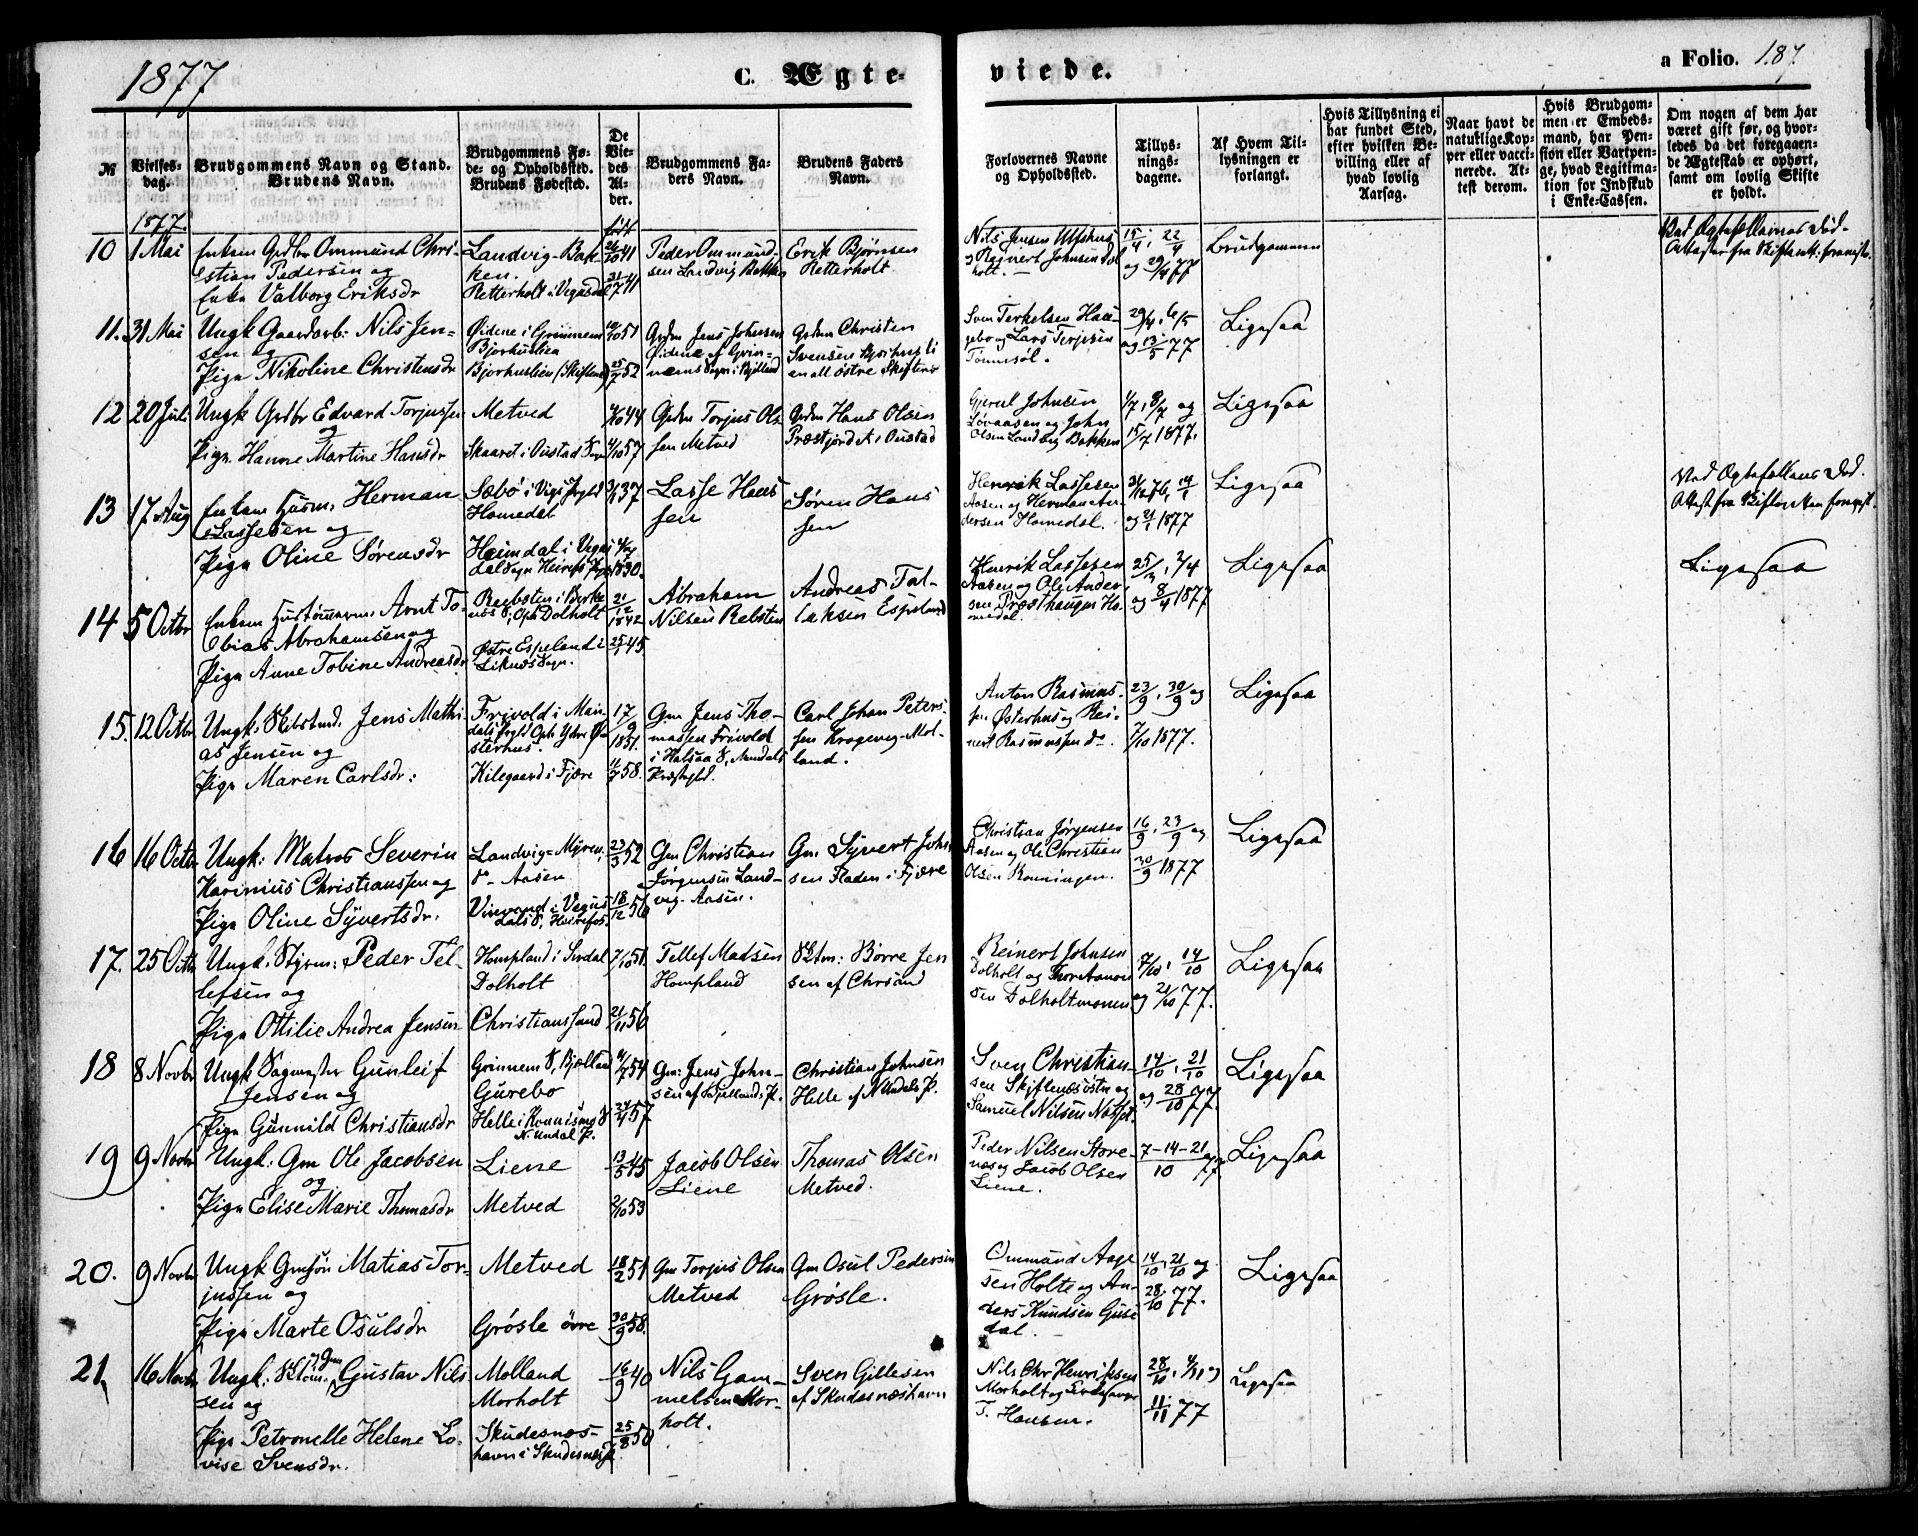 1877
C. Ægte-
viede.
a Folio. 187.
№
Vielses-
dag.
Brudgommens Navn og Stand.
Brudens Navn.
Brudgommens Fø-
de- og Opholdssted.
Brudens Fødested.
De
Vie-
des
Al-
der.
Brudgommens Fa-
ders Navn.
Brudens Faders
Navn.
Forlovernes Navne
og Opholdssted.
Tillys-
nings-
dagene.
Af Hvem Til-
lysningen er
forlangt.
Hvis Tillysning ei
har fundet Sted,
efter hvilken Be-
villing eller af
hvad lovlig
Aarsag.
Naar havt de
naturlige Kop-
per eller vacci-
nerede. At-
test derom.
Hvis Brudgom-
men er Embeds-
mand, har Pen-
sion eller Vartpen-
ge, hvad Legitima-
tion for Indskud
i Enke-Cassen.
Om nogen af dem har
været gift før, og hvor-
ledes da det foregaaen-
de Ægteskab er ophørt,
samt om lovlig Skifte
er holdt.
1877.
10
1 Mai
Enkem Grdbr Ommund Chri-
stian Pedersen og
Enke Valborg Eriksdr
Landvig-Bak-
ken.
Retterholt i Vegusdal
26/10 41
21/7 41
Peder Ommund-
sen Landvig Bakken
Erik Bjørnsen
Retterholt
Nils Jensen Ulfshus
og Reinert Johnsen Dol-
holt.
15/4, 22/4
og 29/4 77
Brudgommen
Ved Ægtefællernes Død.
11.
31 Mai
Ungk Gaardarb: Nils Jen-
sen og
Pige Nikoline Christensdr
Øidene i Grinnem
Bjorhuslien
Bjorhuslien (Skiftenes)
51
25/7 52
Grdm Jens Johnsen
Øidene af Grin-
nems Sogn i Bjelland
Grdm Christen
Svensen Bjorhusli
Sven Terkelsen Hau-
gebo og Lars Terjesen
Tønnesøl.
29/4, 6/5
og 13/5 77
Ligesaa
12
20 Juli
Ungk Grdbr Edvard Torjussen
og
Pige Hanne Martine Hansdr
Metved
Skaaret i Øiestad Sogn
44
4/10 57
Grdm Torjus Ol-
sen Metved
Grdm Hans Olsen
Præstjordet i Øiestad
Johnsen
Løvaasen og John
Olsen Landvig Bakken
1/7, 8/7 og
15/7 1877.
Ligesaa
13
17 Aug
Enkem Husm. Herman
Lassesen og
Pige Oline Sørensdr
Sæbø i Vigs Prgld
Homedal
Heimdal i Vegus-
37
1830.
Lasse Han-
sen
Søren Han-
sen
Henrik Lassesen
Aasen og Herman An-
dersen Homedal.
og 21/1 1877
Ligesaa
Ved Ægtefællens Død.
14
5 Octbr
Arnt To-
bias Abrahamsen og
Pige Anne Tobine Andreasdr
Rebsten i Birke-
næs S, Oph Dolholt
Østre Espeland i
21/12 1842
45
Abraham
Nilsen Rebsten
Andreas Tol-
laksen Espeland
Henrik Lassesen
Aasen og Ole Ander-
sen Præsthaugen Ho-
medal.
25/3, 2/4
og 8/4 1877
Ligesaa
Ligesaa
15.
12 Octbr
Ungk: Jens Mathi-
as Jensen og
Pige Maren Carlsdr:
Frivold i Man-
dals Prgld Oph Ydre Ø-
sterhus.
Kilegaard i Fjære
17/9 1851.
11/7 58.
Gm Jens Tho-
massen Frivold
i Halsaa S, Mandals
Præstegld.
Carl Johan Peters-
sen Krogevig-Mol-
land.
Anton Rasmus-
sen Østerhus og Rei-
nert Rasmussen do.
23/9, 30/9 og
7/10 1877.
Ligesaa
16
16 Octbr
Ungk: Matros Severin
Karinius Christianssen og
Pige Oline Syvertsdr.
Landvig-Myren,
do - Aasen
Vinvand i Vegus-
dals S, Heirefos.
23/3 52
18/12 56
Gm Christian
Jørgensen Land-
vig-Aasen.
Gm Syvert John-
sen Fladen i Fjære
Christian Jørgensen
Aasen og Ole Christian
Olsen Rønningen.
16/9, 23/9 og
30/9 1877
Ligesaa
17.
25 Octbr
Ungk. Styrm: Peder Tel-
lefsen og
Pige Ottilie Andrea Jensen
Hompland i Sirdal
Dolholt
Christianssand
7/10 51.
21/11 56
Tellef Madsen
Hompland
Børre Jen-
sen af Chrsand
Reinert Johnsen
Dolholt og Thore Aanon-
sen Dolholtmonen
7/10, 14/10
og 21/10 77.
Ligesaa
18
8 Novbr
Ungk Sagmester Gunleif
Jensen og
Pige Gunnild Christiansdr
Grinnem S, Bjelland
Gurebo
Helle i Konnismo S
N. Undal P.
54
24/4 57
Gm: Jens John-
sen af Bjellands P.
Christian Johnsen
Helle af N Undals P.
Sven Christian-
sen Skiftenes østre og
Samuel Nilsen
14/10, 21/10
og 28/10 77.
Ligesaa
19
9 Novbr
Ungk: Gm Ole Jacobsen
og
Pige Elise Marie Thomasdr
Liene
Metved
13/5 45
2/10 53
Jacob Olsen
Liene
Thomas Olsen
Metved.
Peder Nilsen Store-
næs og Jacob Olsen
Liene.
7-14-21/10 77.
Ligesaa
20.
9 Novbr
Ungk Gmsøn Matias Tor-
jussen og
Pige Marte Osulsdr
Metved
Grøsle øvre
18/2 51
30/9 58.
Gm Torjus Olsen
Metved
Gm Osul Pedersen
Grøsle.
Ommund Aage-
sen Holte og An-
ders Knudsen Guse-
dal.
14/10, 21/10 og
28/10 77.
Ligesaa
21
16 Novbr
Ungk: Gustav Nils-
sen og
Pige Petronelle Helene Lo-
vise Svensdr.
Molland
Morholt
Skudesnæs-
havn i Skudesnæs P.
16/9 40
25/8 50
Nils Gam-
melsen Mor-
holt.
Sven Gillesen
af Skudesnæshavn
Nils Chr Henriksen
Morholt og
T. Hansen.
28/10, 4/11 og
11/11 77
Ligesaa